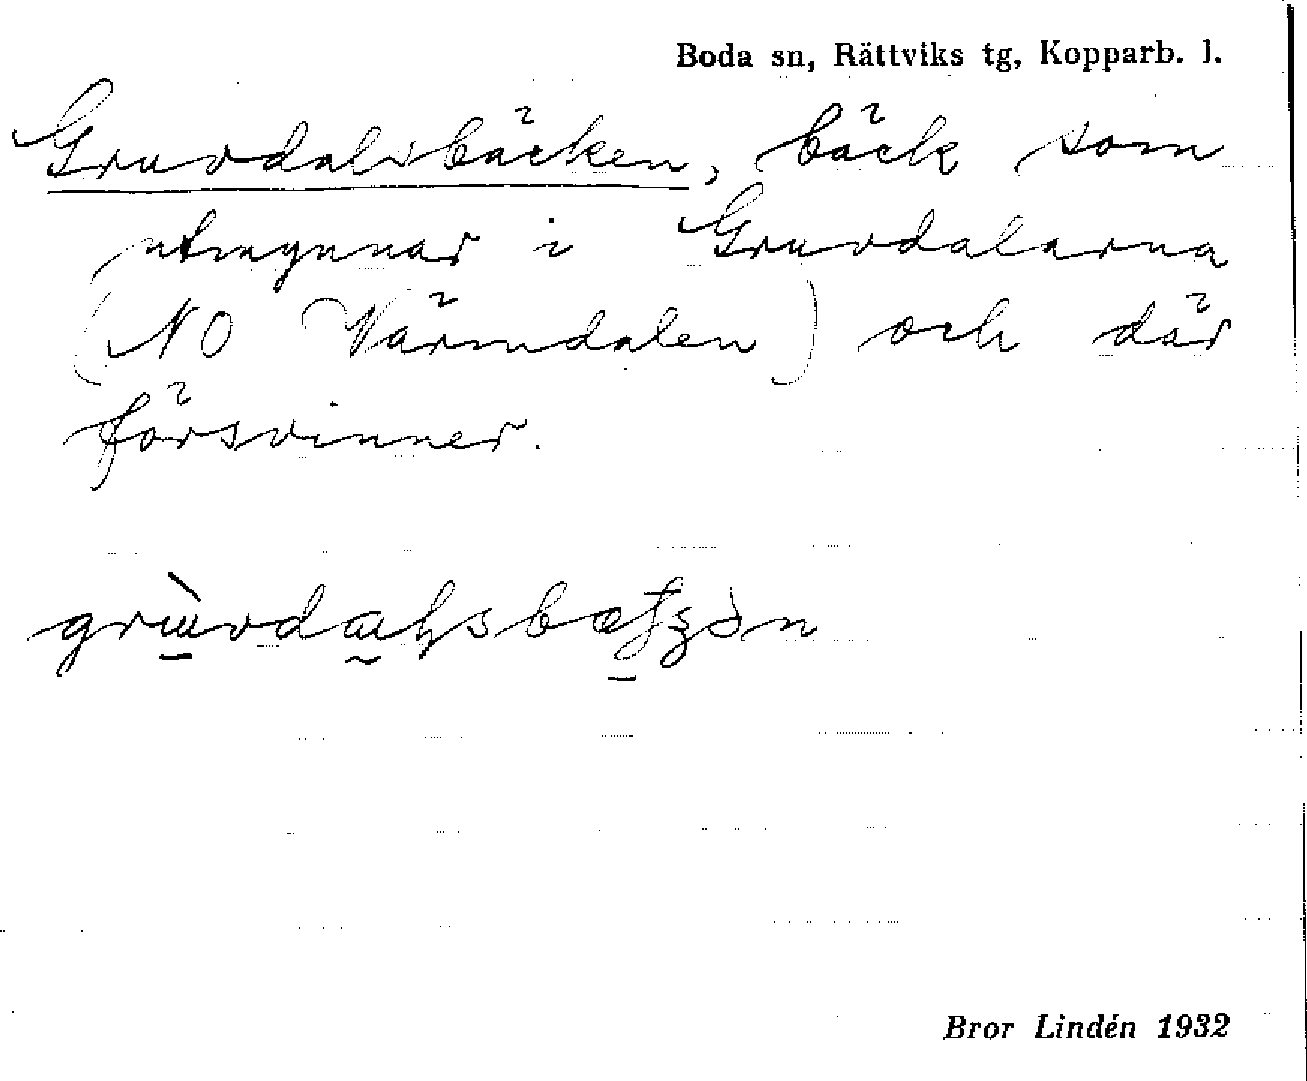 Boda sn, Rättviks tg, Kopparb. l.
Gruvdalsbäcken, bäck som
uppynnar i Gruvdalarna
(NO Värmdalen) och där
försvinner.
Bror Lindén 1932